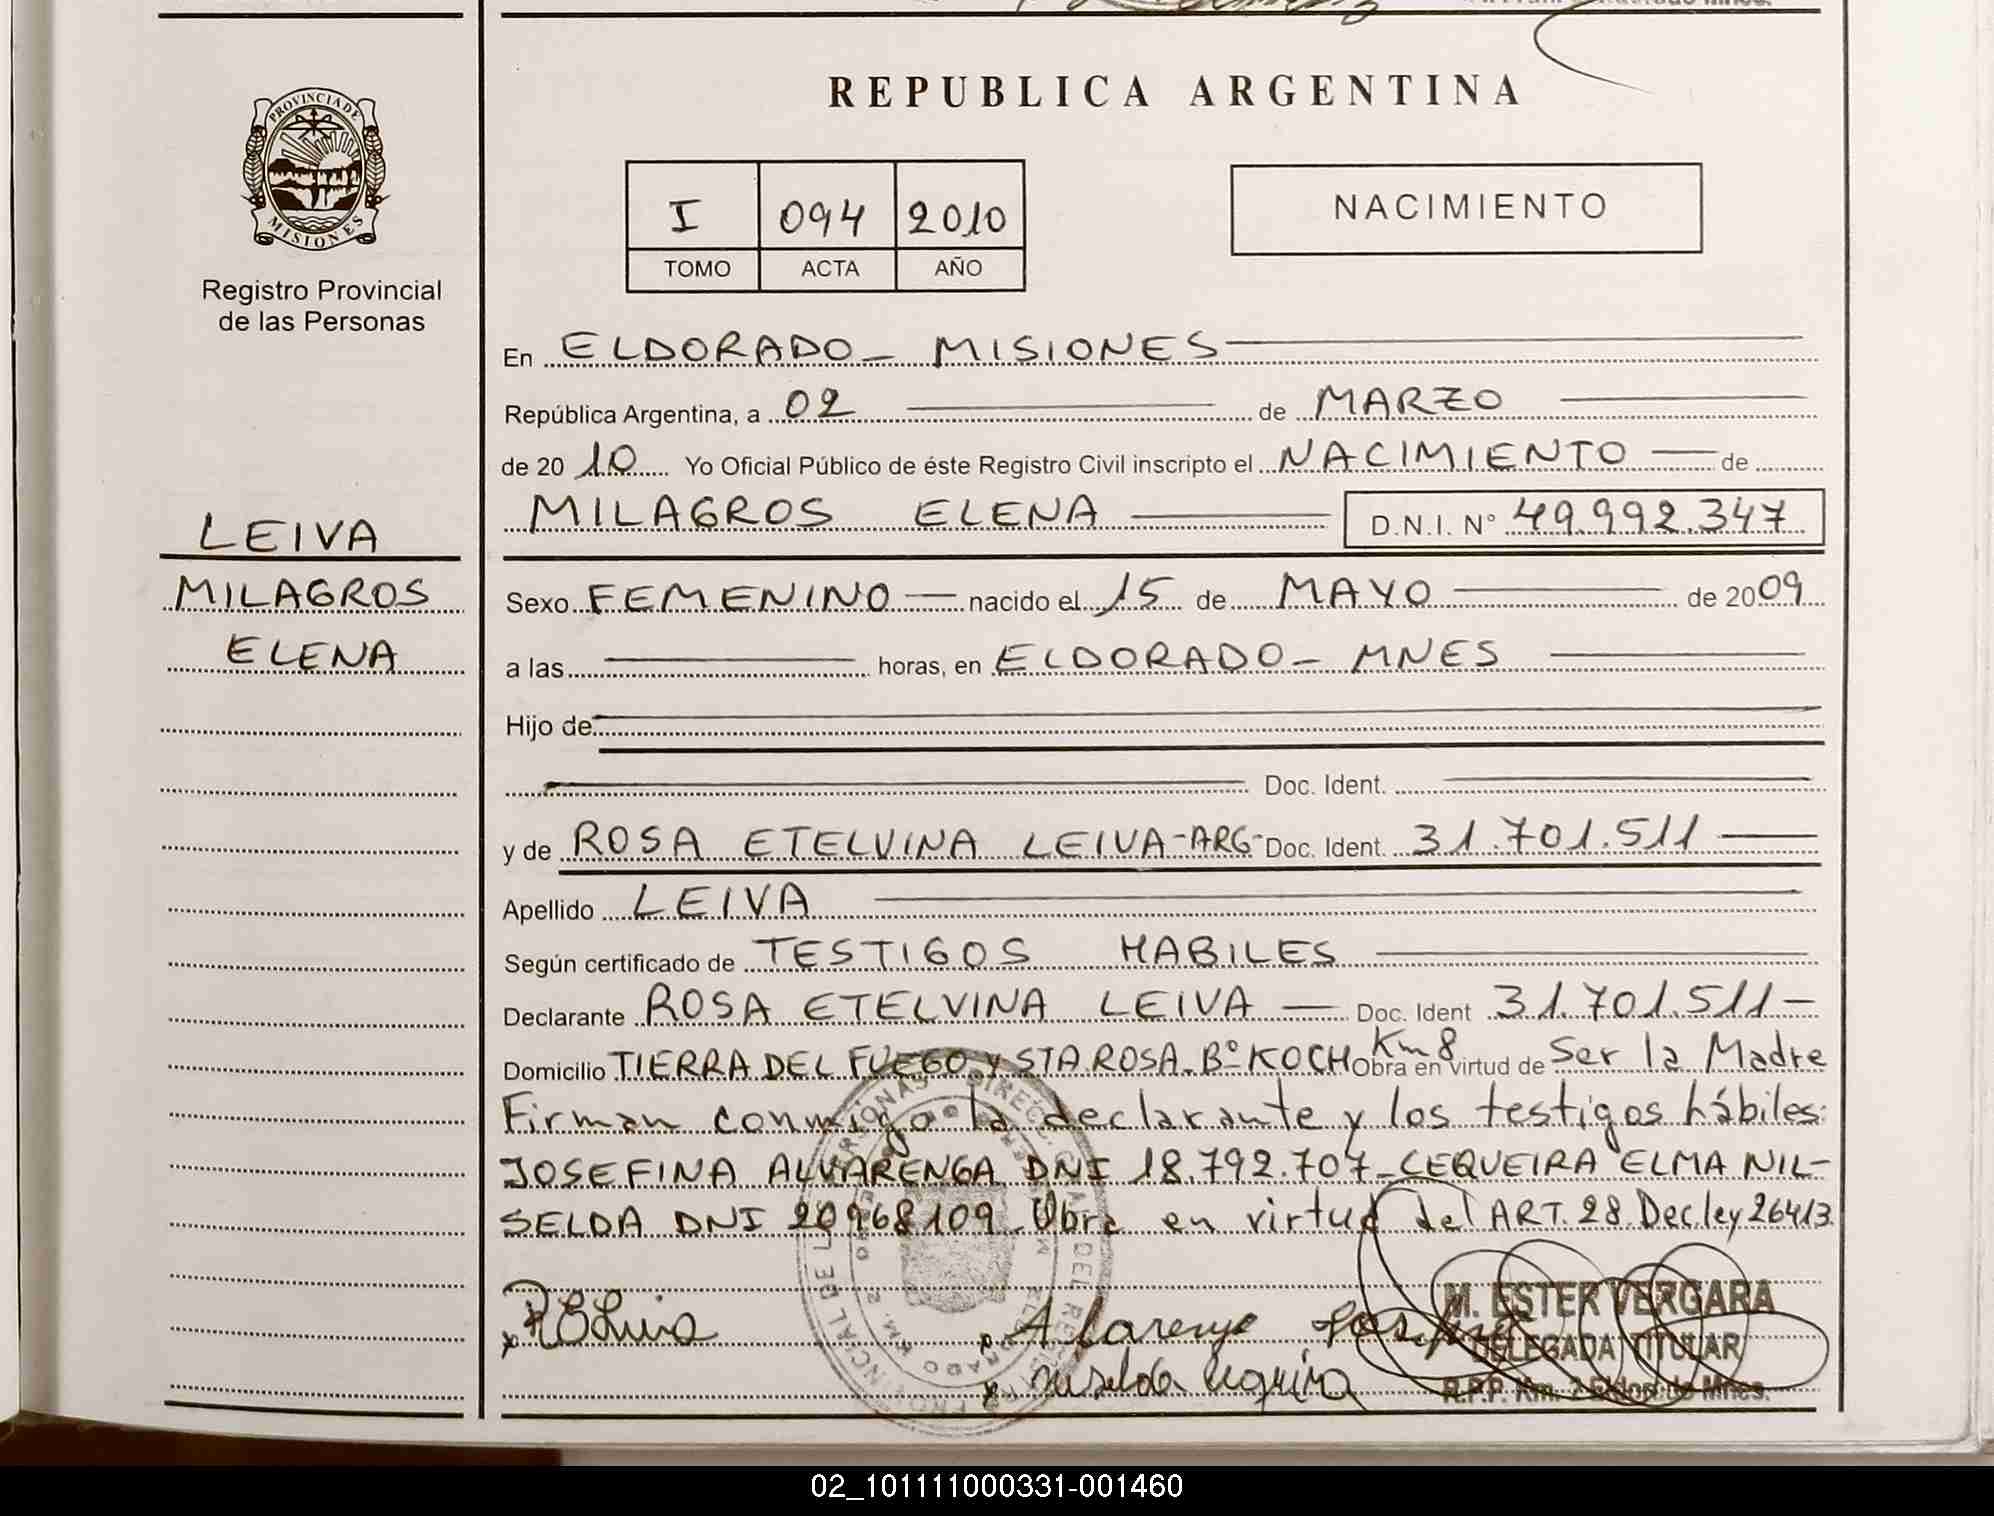 REPUBLICA ARGENTINA
PROVINCIA DE
MISIONES
Registro Provincial
de las Personas
I 094 2010
TOMO ACTA AÑO
NACIMIENTO
En ELDORADO - MISIONES
República Argentina, a 02 de MARZO
de 2010 Yo Oficial Público de éste Registro Civil inscripto el NACIMIENTO de
MILAGROS ELENA D.N.I. N° 49.992.347
LEIVA
MILAGROS
ELENA
Sexo FEMENINO nacido el 15 de MAYO de 2009
a las horas, en ELDORADO - MNES
Hijo de
Doc. Ident.
y de ROSA ETELVINA LEIVA-ARG- Doc. Ident. 31.701.511
Apellido LEIVA
Según certificado de TESTIGOS HABILES
Declarante ROSA ETELVINA LEIVA Doc. Ident 31.701.511-
Domicilio TIERRA DEL FUEGO Y STA ROSA. B° KOCH Km 8 Obra en virtud de Ser la Madre
Firman conmigo la declarante y los testigos hábiles:
JOSEFINA ALVARENGA DNI 18.792.707-CEQUEIRA ELMA NIL-
SELDA DNI 20968109. Obra en virtud del ART. 28. Dec.ley 26413.
M. ESTER VERGARA
DELEGADA TITULAR
R.P.P. Km. 2 Eldorado Mnes.
02_101111000331-001460